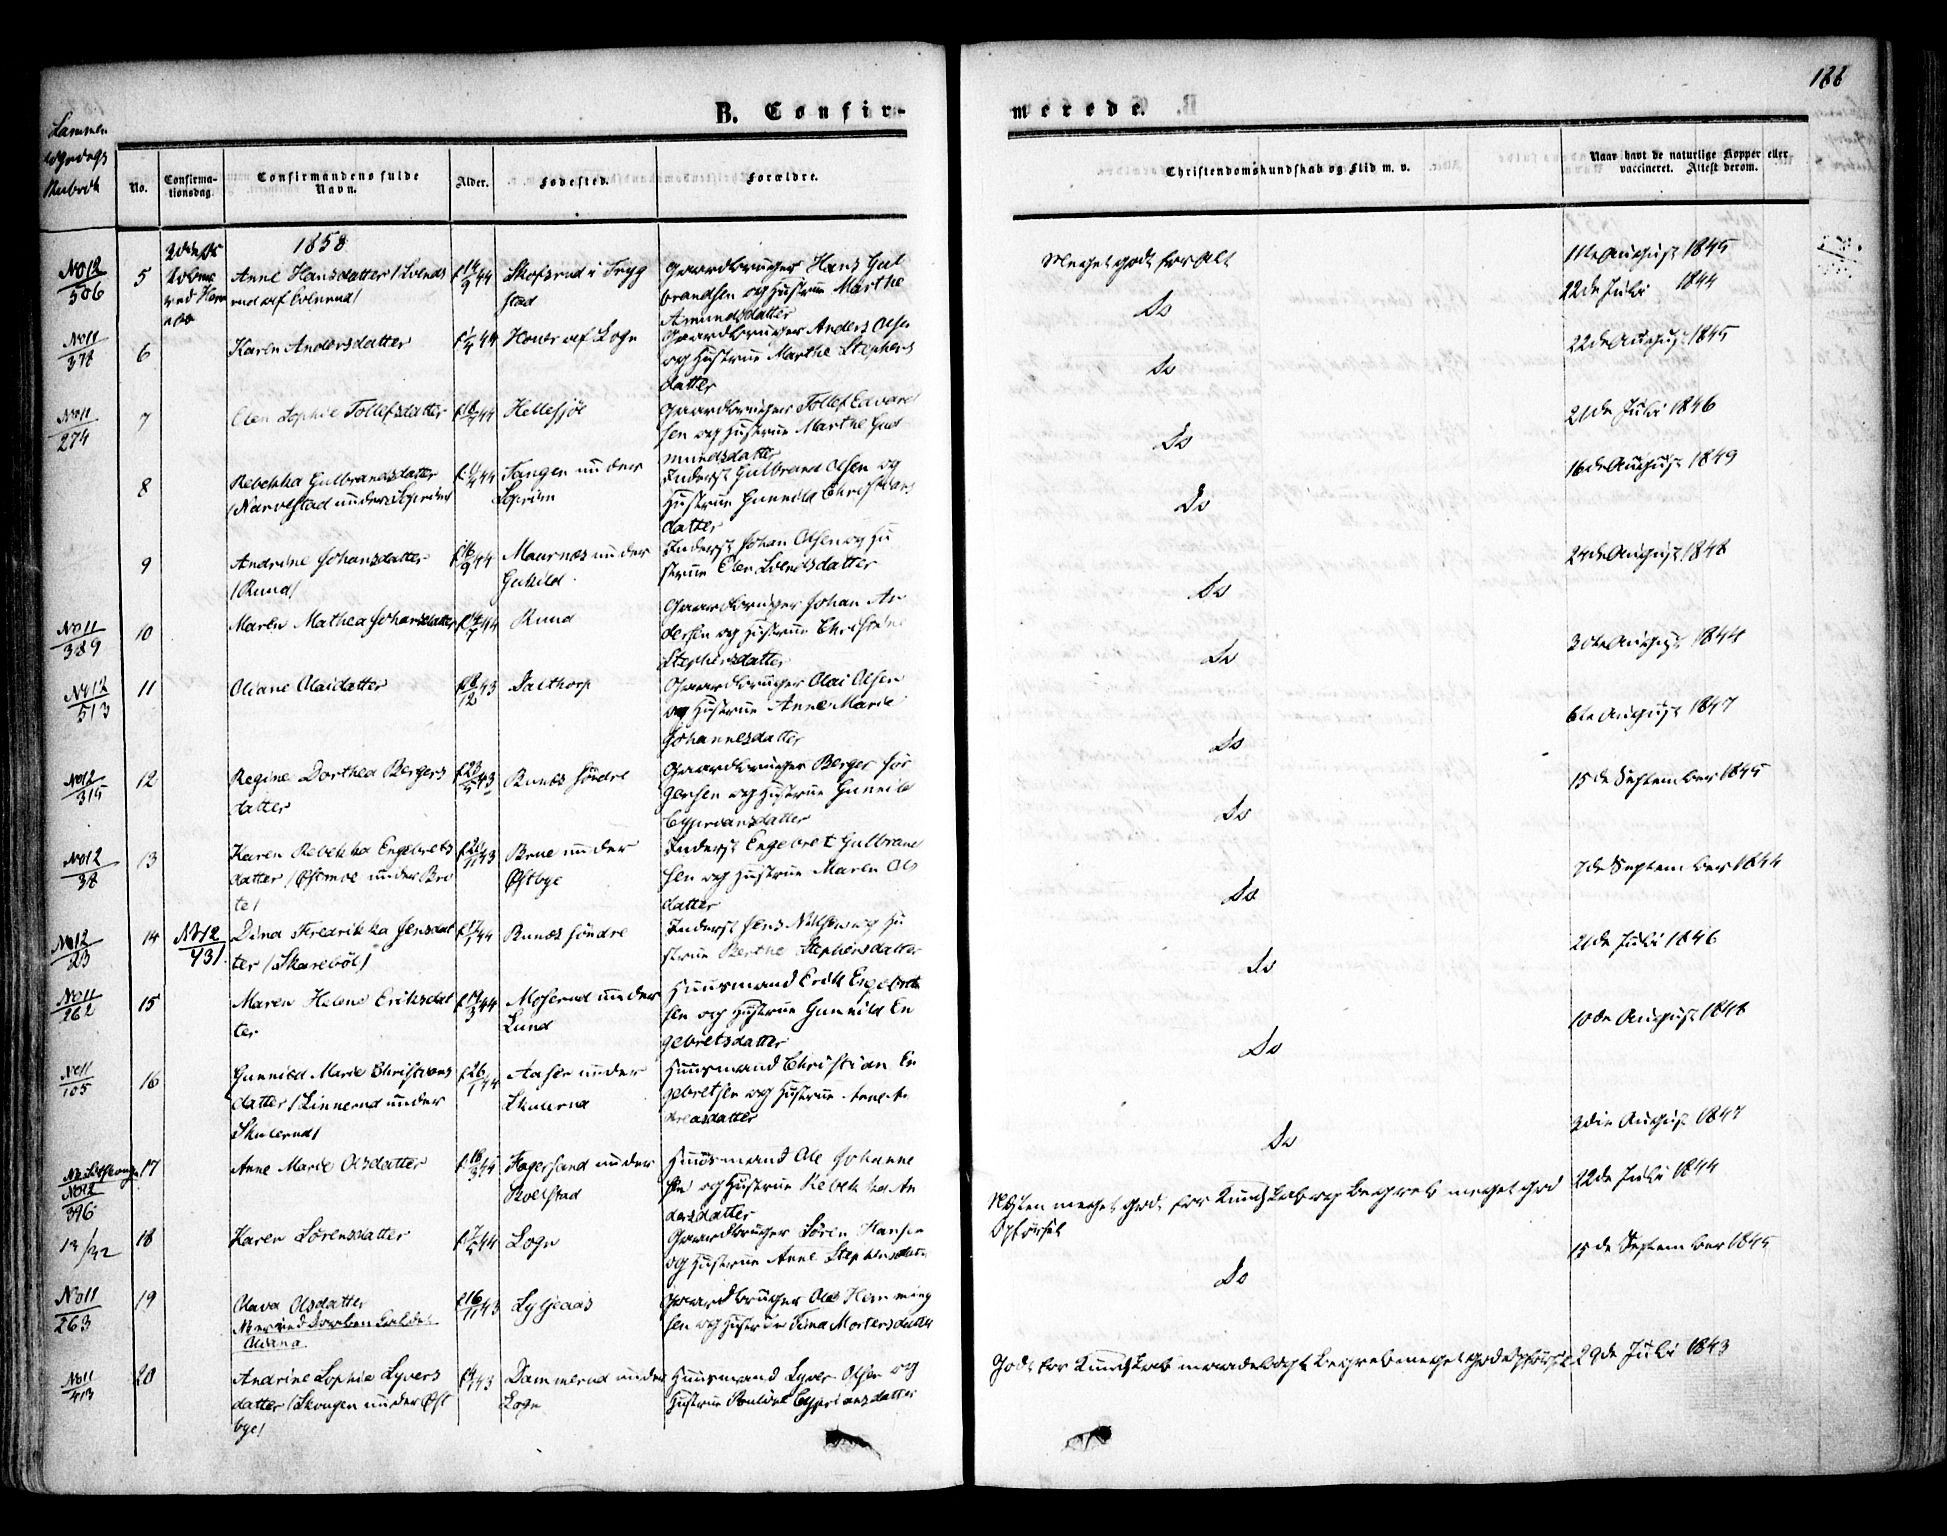 188
B. Confir-
merede.
Sammen
No.
Confirma-
tionsdag.
Confirmandens fulde
Navn.
Alder.
Fødested.
Forældre.
Christendomskundskab og Flid m. v.
Naar havt de naturlige Kopper eller
vaccineret. Attest derom.
1858
No 12
506
5
Anne Hansdatter
f 44
Gaardbruger Hans Gul
brandsen og Hustrue Marthe
Amundsdatter
Meget godt for Alt
11te August 1845
22de Juli 1844
No 11
378
6
Karen Andersdatter
44
Gaardbruger Anders Olsen
og Hustrue Marthe Stephens
datter
Do
22de August 1845
No 11
274
7
Elen Sophie Tollefsdatter
44
Hellesjøe
Gaardbruger Tollef Edvard
sen og Hustrue Marthe Gud
mundsdatter
Do
21de Juli 1846
8
Rebekka Gulbrandsdatter
44
Tangen under
Inderst Gulbrand Olsen og
Hustrue Gunnild Christians
datter
Do
16de August 1849
9
Andrine Johansdatter
/Ruud/
44
Maurnes under
Inderst Johan Olsen og Hu
strue Elen Svendsdatter
Do
24de August 1848
No 11
389
10
Maren Mathea Johansdatter
44
Ruud
Gaardbruger Johan An
dersen og Hustrue Christine
Stephensdatter
Do
3die August 1844
No 12
513
11
Oliane Olaidatter
43
Dalthorp
Gaardbruger Olai Olsen
og Hustrue Anne Marie
Johannesdatter
Do
6te August 1847
No 12
315
12
Regine Dorthea Bergers
datter
43
Bunæs søndre
Gaardbruger Berger Jør
gensen og Hustrue Gunnild
Cyprionsdatter
Do
15de September 1845
No 12
38
13
Karen Rebekka Engebrets
datter /Østmoe under Bra
te/
43
Brue under
Østbye
Inderst Engebret Gulbrand
sen og Hustrue Maren Ols
datter
Do
7de September 1844
No 12
23
14
No 12
431
Dina Fredrikka Jensdat
ter /Skarebøl/
44
Bunæs søndre
Inderst Jens Nielsen og Hu
strue Berthe Stephensdatter
Do
21de Juli 1846
No 11
262
15
Maren Helene Eriksdat
ter
44
Moserud under
Lund
Huusmand Erik Engebret
sen og Hustrue Gunnild En
gebretsdatter
Do
10de August 1848
No 11
105
16
Gunnild Marie Christians
datter /Linnerud under
Skulerud/
44
Aaser under
Skulerud
Huusmand Christian En
gebretsen og Hustrue
dreasdatter
Do
3die August 1847
No 12
396
17
Anne Marie Olsdatter
44
Fagersand under
Huusmand Ole Johanne
sen og Hustrue Rebekka An
dersdatter
Næsten meget godt for Kundskab og Begreb meget god
Opførsel
22de Juli 1844
18
Karen Sørensdatter
44
Sogn
Gaardbruger Søren Hansen
og Hustrue Anne Stephensdatter
Do
15de September 1845
No 11
263
19
Olava Olsdatter
43
Gaardbruger Ole Hemming
sen og Hustrue Mortensdatter
No 11
413
20
Andrine Sophie Syvers
datter /Skougen under Øst
bye/
43
Dammerud under
Sogn
Huusmand Syver Olsen og
Hustrue Cypriansdatter
Godt for Kundskab maadeligt Begreb meget god Opførsel
29de Juli 1843